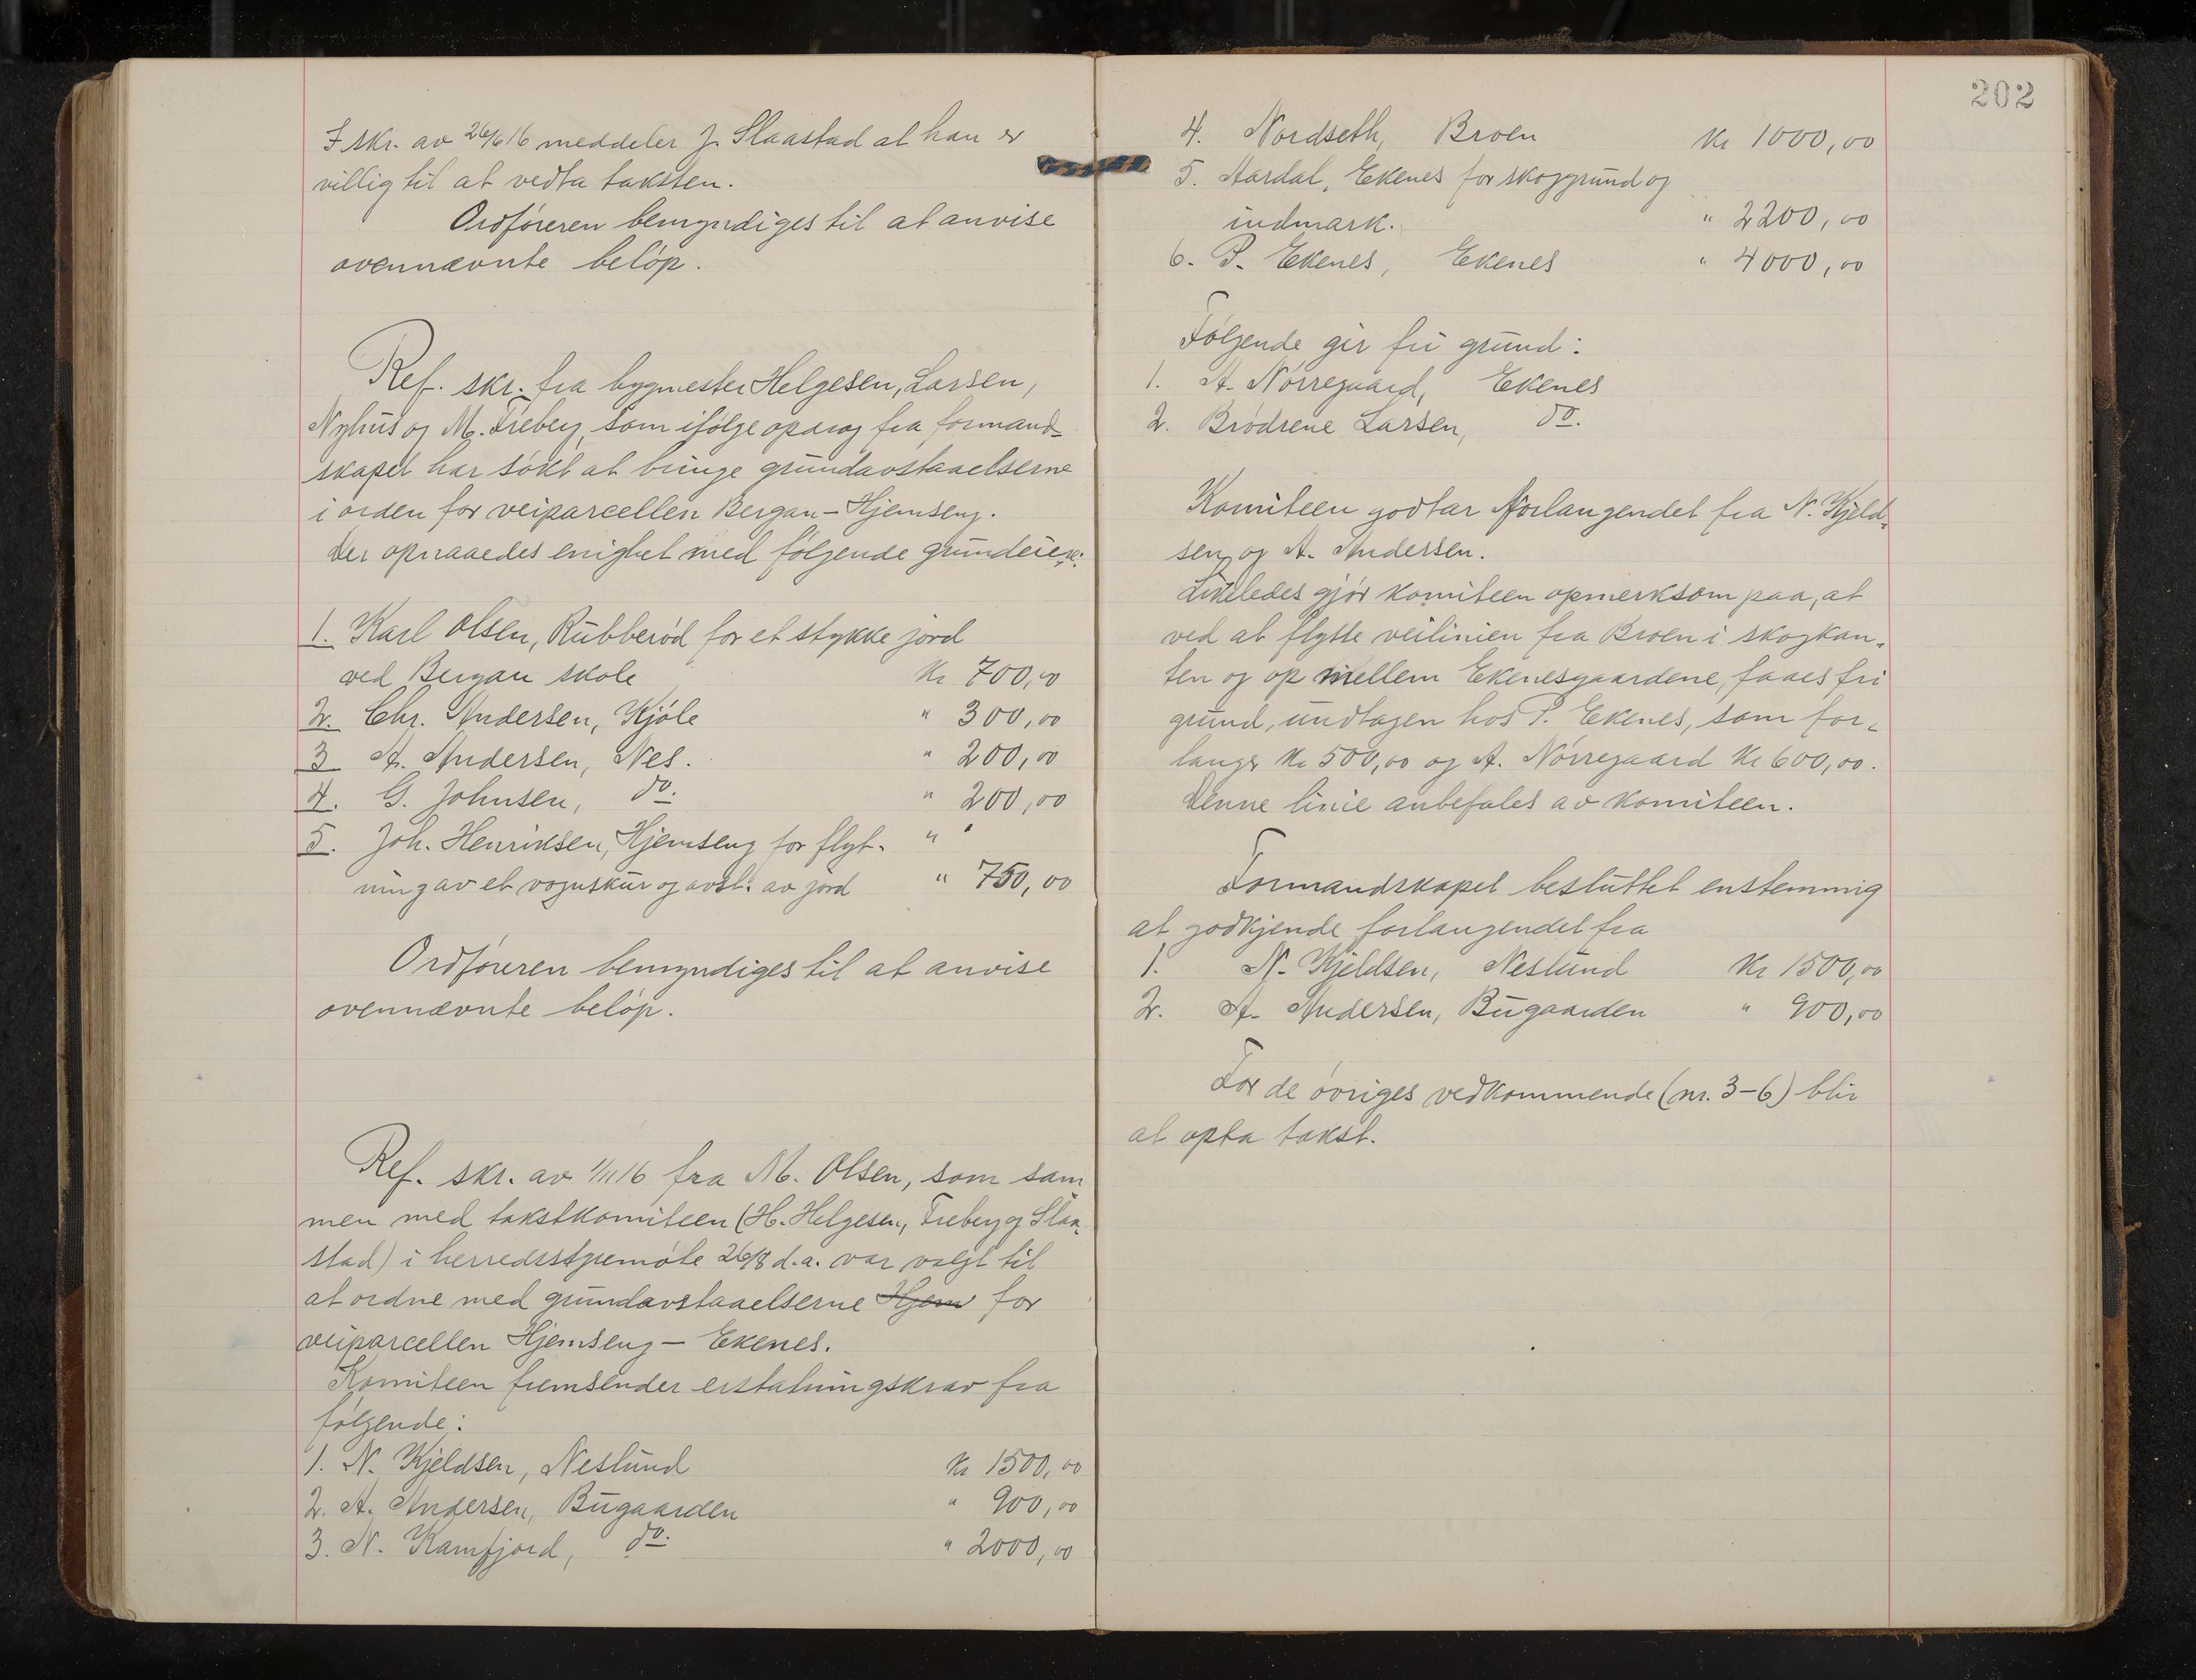 I skr. av 26/6 16 meddeler J. Slaastad at han er
villig til at vedta taksten.
Ordføreren bemyndiges til at anvise
ovennævnte beløp.
Ref. skr. fra bygmester Helgesen, Larsen,
Nyhus og M. Freberg, som ifølge opdrag fra formand-
skapet har søkt at bringe grundavstaaelserne
i orden for veiparcellen Bergan - Hjemseng.
Der opnaaedes enighet med følgende grundeiere:
1. Karl Olsen, Rubberød for et stykke jord
ved Bergan skole Kr 700,00
2. Chr. Andersen, Kjøle " 300,00
3 A. Andersen, Nes. " 200,00
4. G. Johnsen, do. " 200,00
5. Joh. Henriksen, Hjemseng for flyt- "
ning av et vognskur og avst. av jord " 750,00
Ordføreren bemyndiges til at anvise
ovennævnte beløp.
Ref. skr. av 1/11 16 fra M. Olsen, som sam
men med takstkomiteen (H. Helgesen, Freberg og Slaa-
stad) i herredsstyremøte 26/8 d.a. var valgt til
at ordne med grundavstaaelserne Hjem for
veiparcellen Hjemseng - Ekenes.
Komiteen fremsender erstatningskrav fra
følgende:
1. N. Kjeldsen, Neslund Kr 1500,00
2. A. Andersen, Bugaarden " 900,00
3. N. Kamfjord, do. " 2000,00
202
4. Nordseth, Broen Kr 1000,00
5. Aardal, Ekenes for skoggrund og
indmark. " 2200,00
6. P. Ekenes, Ekenes " 4000,00
Følgende gir fri grund:
1. A. Nørregaard, Ekenes
2. Brødrene Larsen, do.
Komiteen godtar forlangendet fra N. Kjeld-
sen og A. Andersen.
Likeledes gjør komiteen opmerksom paa, at
ved at flytte veilinien fra Broen i skogkan-
ten og op mellem Ekenesgaardene, faaes fri
grund, undtagen hos P. Ekenes, som for-
langr Kr 500,00 og A. Nørregaard Kr 600,00.
Denne linie anbefales av komiteen.
Formandskapet besluttet enstemmig
at godkjende forlangendet fra
1. N. Kjeldsen, Neslund Kr 1500,00
2. A. Andersen, Bugaarden " 900,00
For de øvriges vedkommende (nr. 3-6) blir
at opta takst.